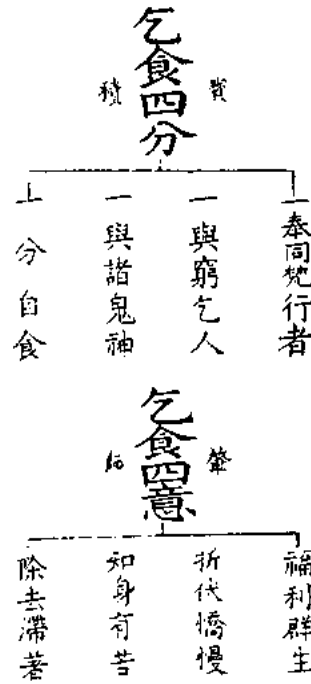 乞食四分
寶
積
一奉同梵行者
一與窮乞人
一與諸鬼神
一分自食
乞食四意
肇
福利群生
折伏憍慢
知身有苦
除去滯著